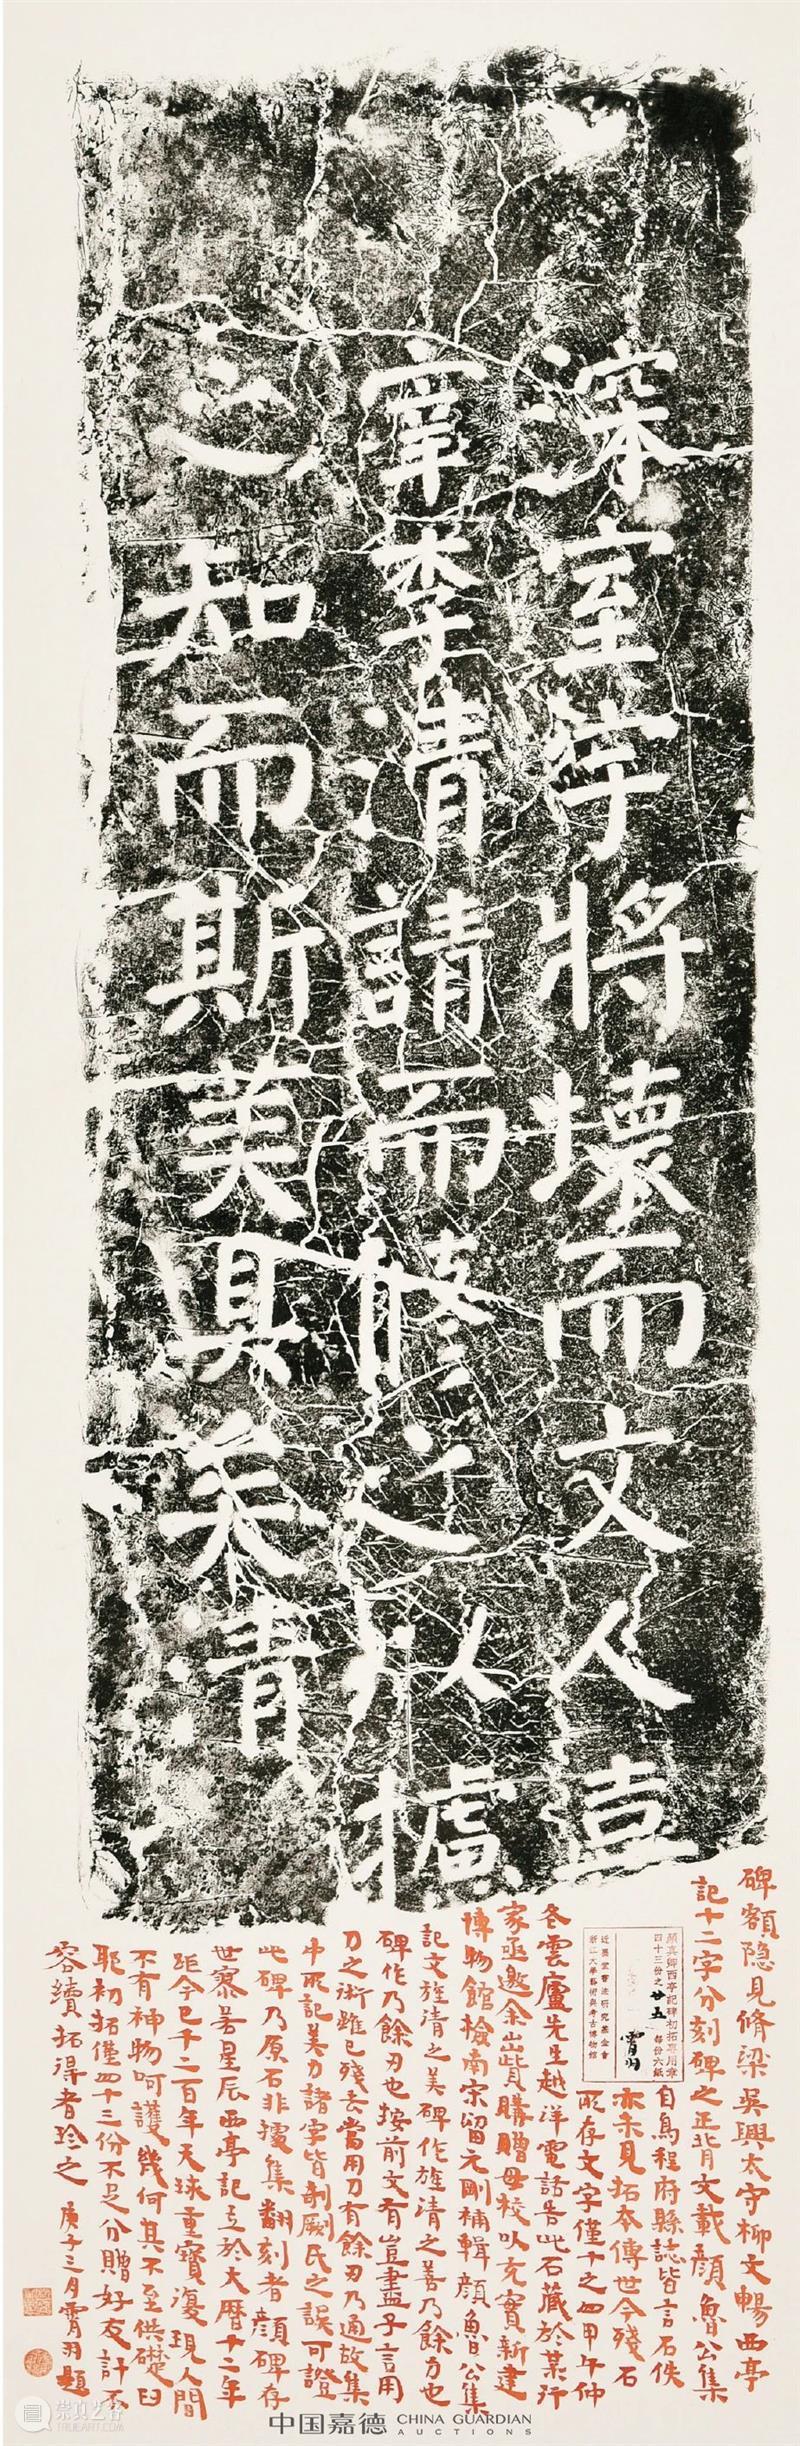 深室宇將壞而文人喜
宰李清請而脩之以攄
之知而斯美具矣青
碑額隐見脩梁吳興太守柳文暢西亭
記十二字分刻碑之正背文載顏魯公集
顏真卿西亭記碑初拓專用章
四十三份之廿五 每份六紙
近墨堂書法研究基金會
浙江大學藝術與考古博物館
自烏程府縣誌皆言石佚
亦未見拓本傳世今殘石
所存文字僅十之四甲午仲
冬雲廬先生越洋電話告此石藏於某行
家亟邀余出貲購贈母校以充實新建
博物館檢南宋留元剛補輯顏魯公集
記文旌清之美碑作旌清之善乃餘力也
碑作乃餘刃也按前文有豈盡子言用
刀之術雖已殘去當用刀有餘刃乃通故集
中所記美力諸字皆剞劂氏之誤可證
此碑乃原石非據集翻刻者顏碑存
世寥若星辰西亭記立於大曆十二年
距今已千二百年天球重寶復現人間
不有神物呵護幾何其不至供礎臼
耶初拓僅四十三份不足分贈好友計不
容續拓得者珍之 庚子三月霄羽題
崇真艺客
TRUEART.COM
中国嘉德 CHINA GUARDIAN
AUCTIONS